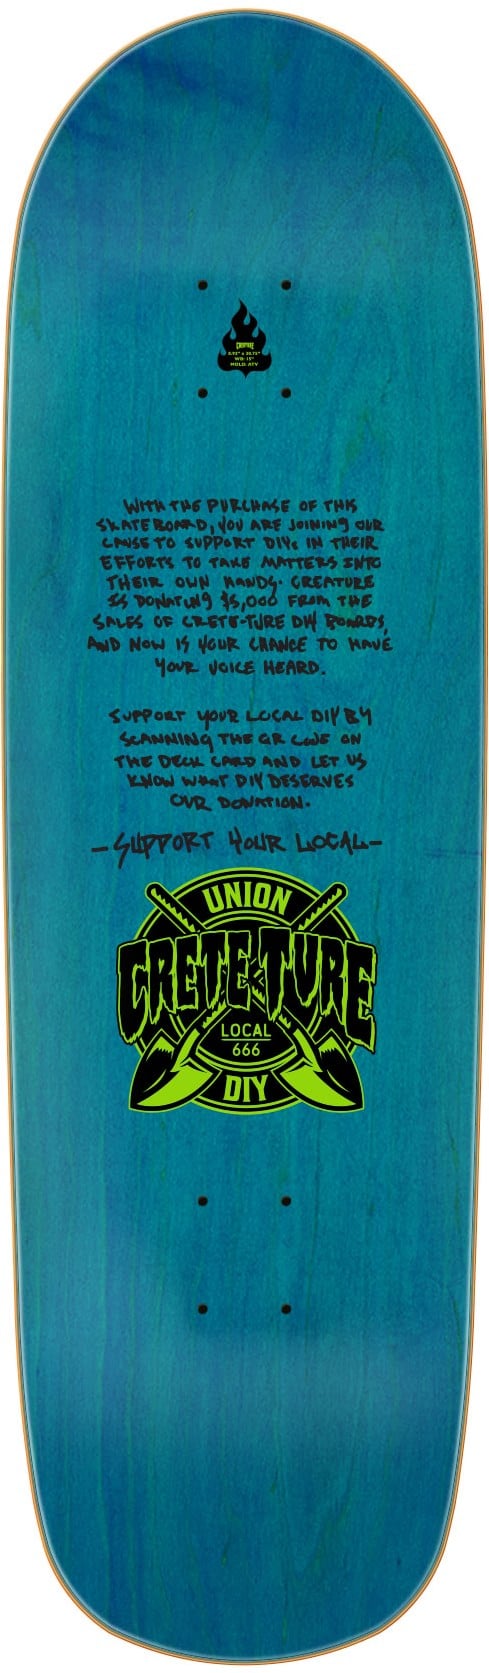 CREATURE
8.93" x 32.75"
WB: 15"
MOLD: ATV
WITH THE PURCHASE OF THIS
SKATEBOARD, YOU ARE JOINING OUR
CAUSE TO SUPPORT DIYs IN THEIR
EFFORTS TO TAKE MATTERS INTO
THEIR OWN HANDS. CREATURE
IS DONATING $5,000 FROM THE
SALES OF CRETE-TURE DIY BOARDS,
AND NOW IS YOUR CHANCE TO HAVE
YOUR VOICE HEARD.
SUPPORT YOUR LOCAL DIY BY
SCANNING THE QR CODE ON
THE DECK CARD AND LET US
KNOW WHAT DIY DESERVES
OUR DONATION.
-SUPPORT YOUR LOCAL-
UNION
CRETE-TURE
LOCAL
666
DIY